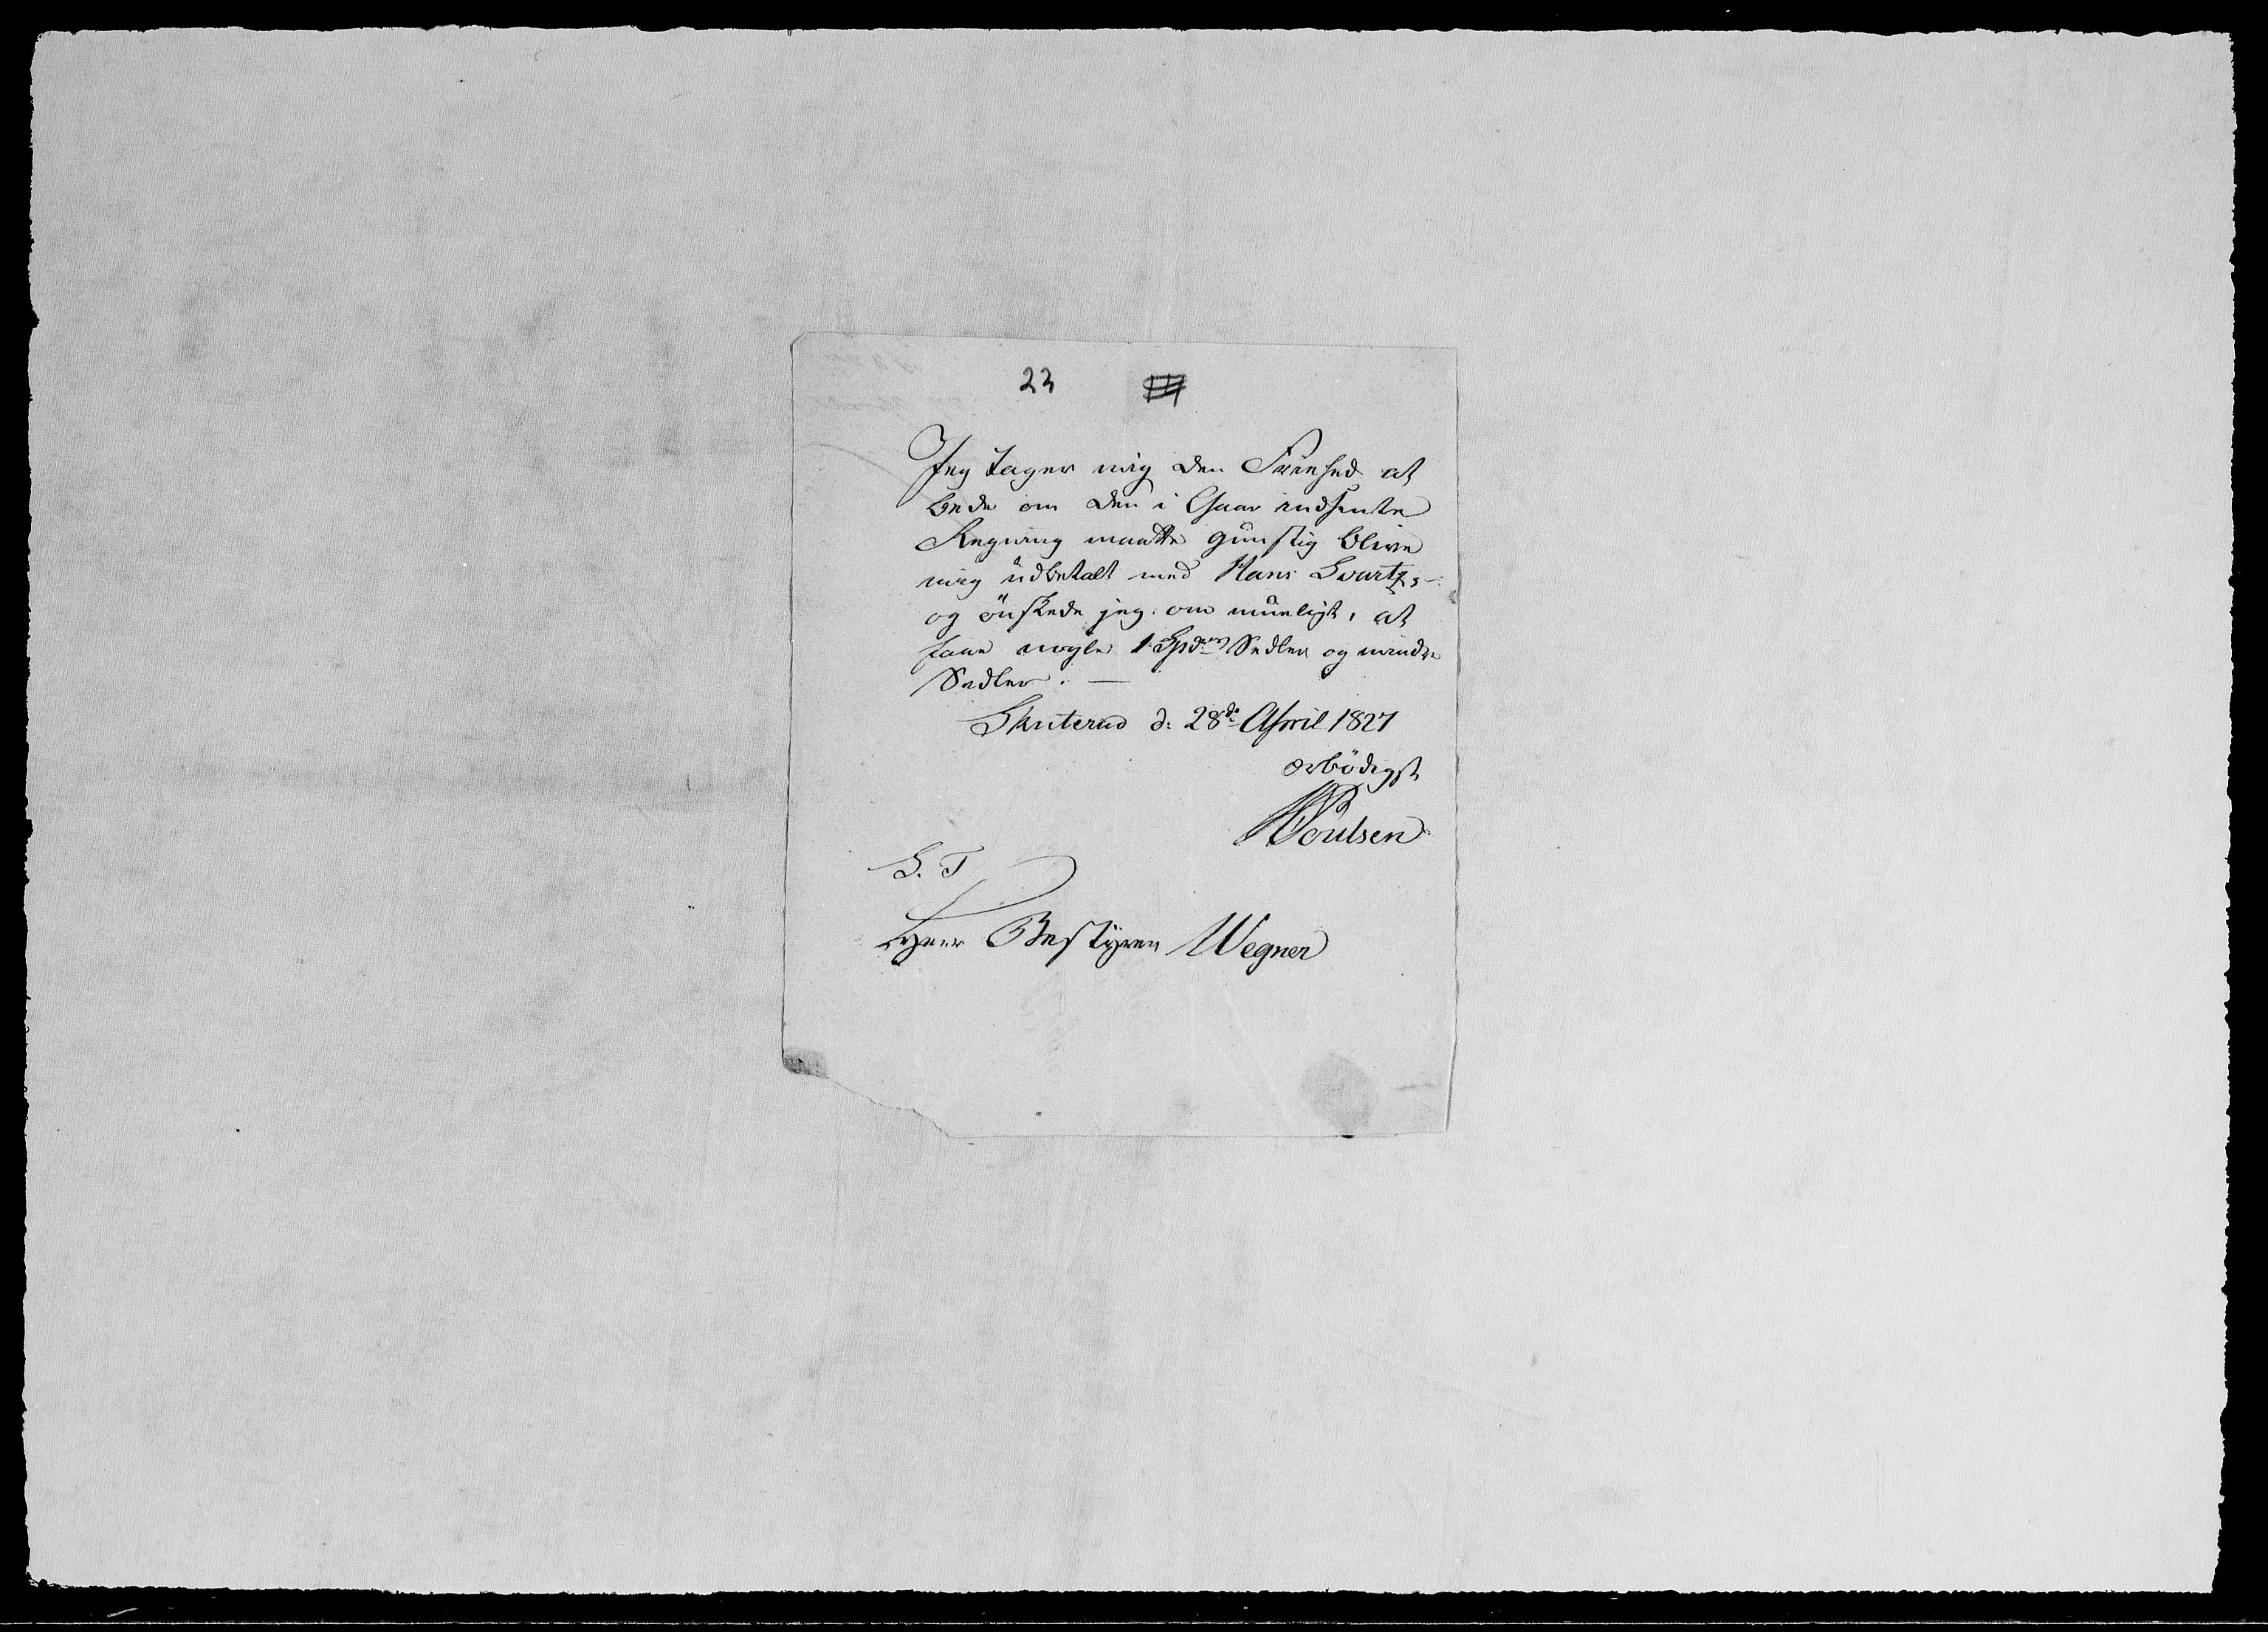 23
Jeg tager mig den Friehed at
bede om den i Gaar indsendte
Regning maatte gunstig blive
mig udbetalt med Hans Svartz,
og önskede jeg om mueligt, at
faae nogle 1 Spd. Sedler og mindre
Sedler. —
Skuterud d: 28de April 1827
ærbödigst
Poulsen
S. T
Herr Bestyrer Wegner